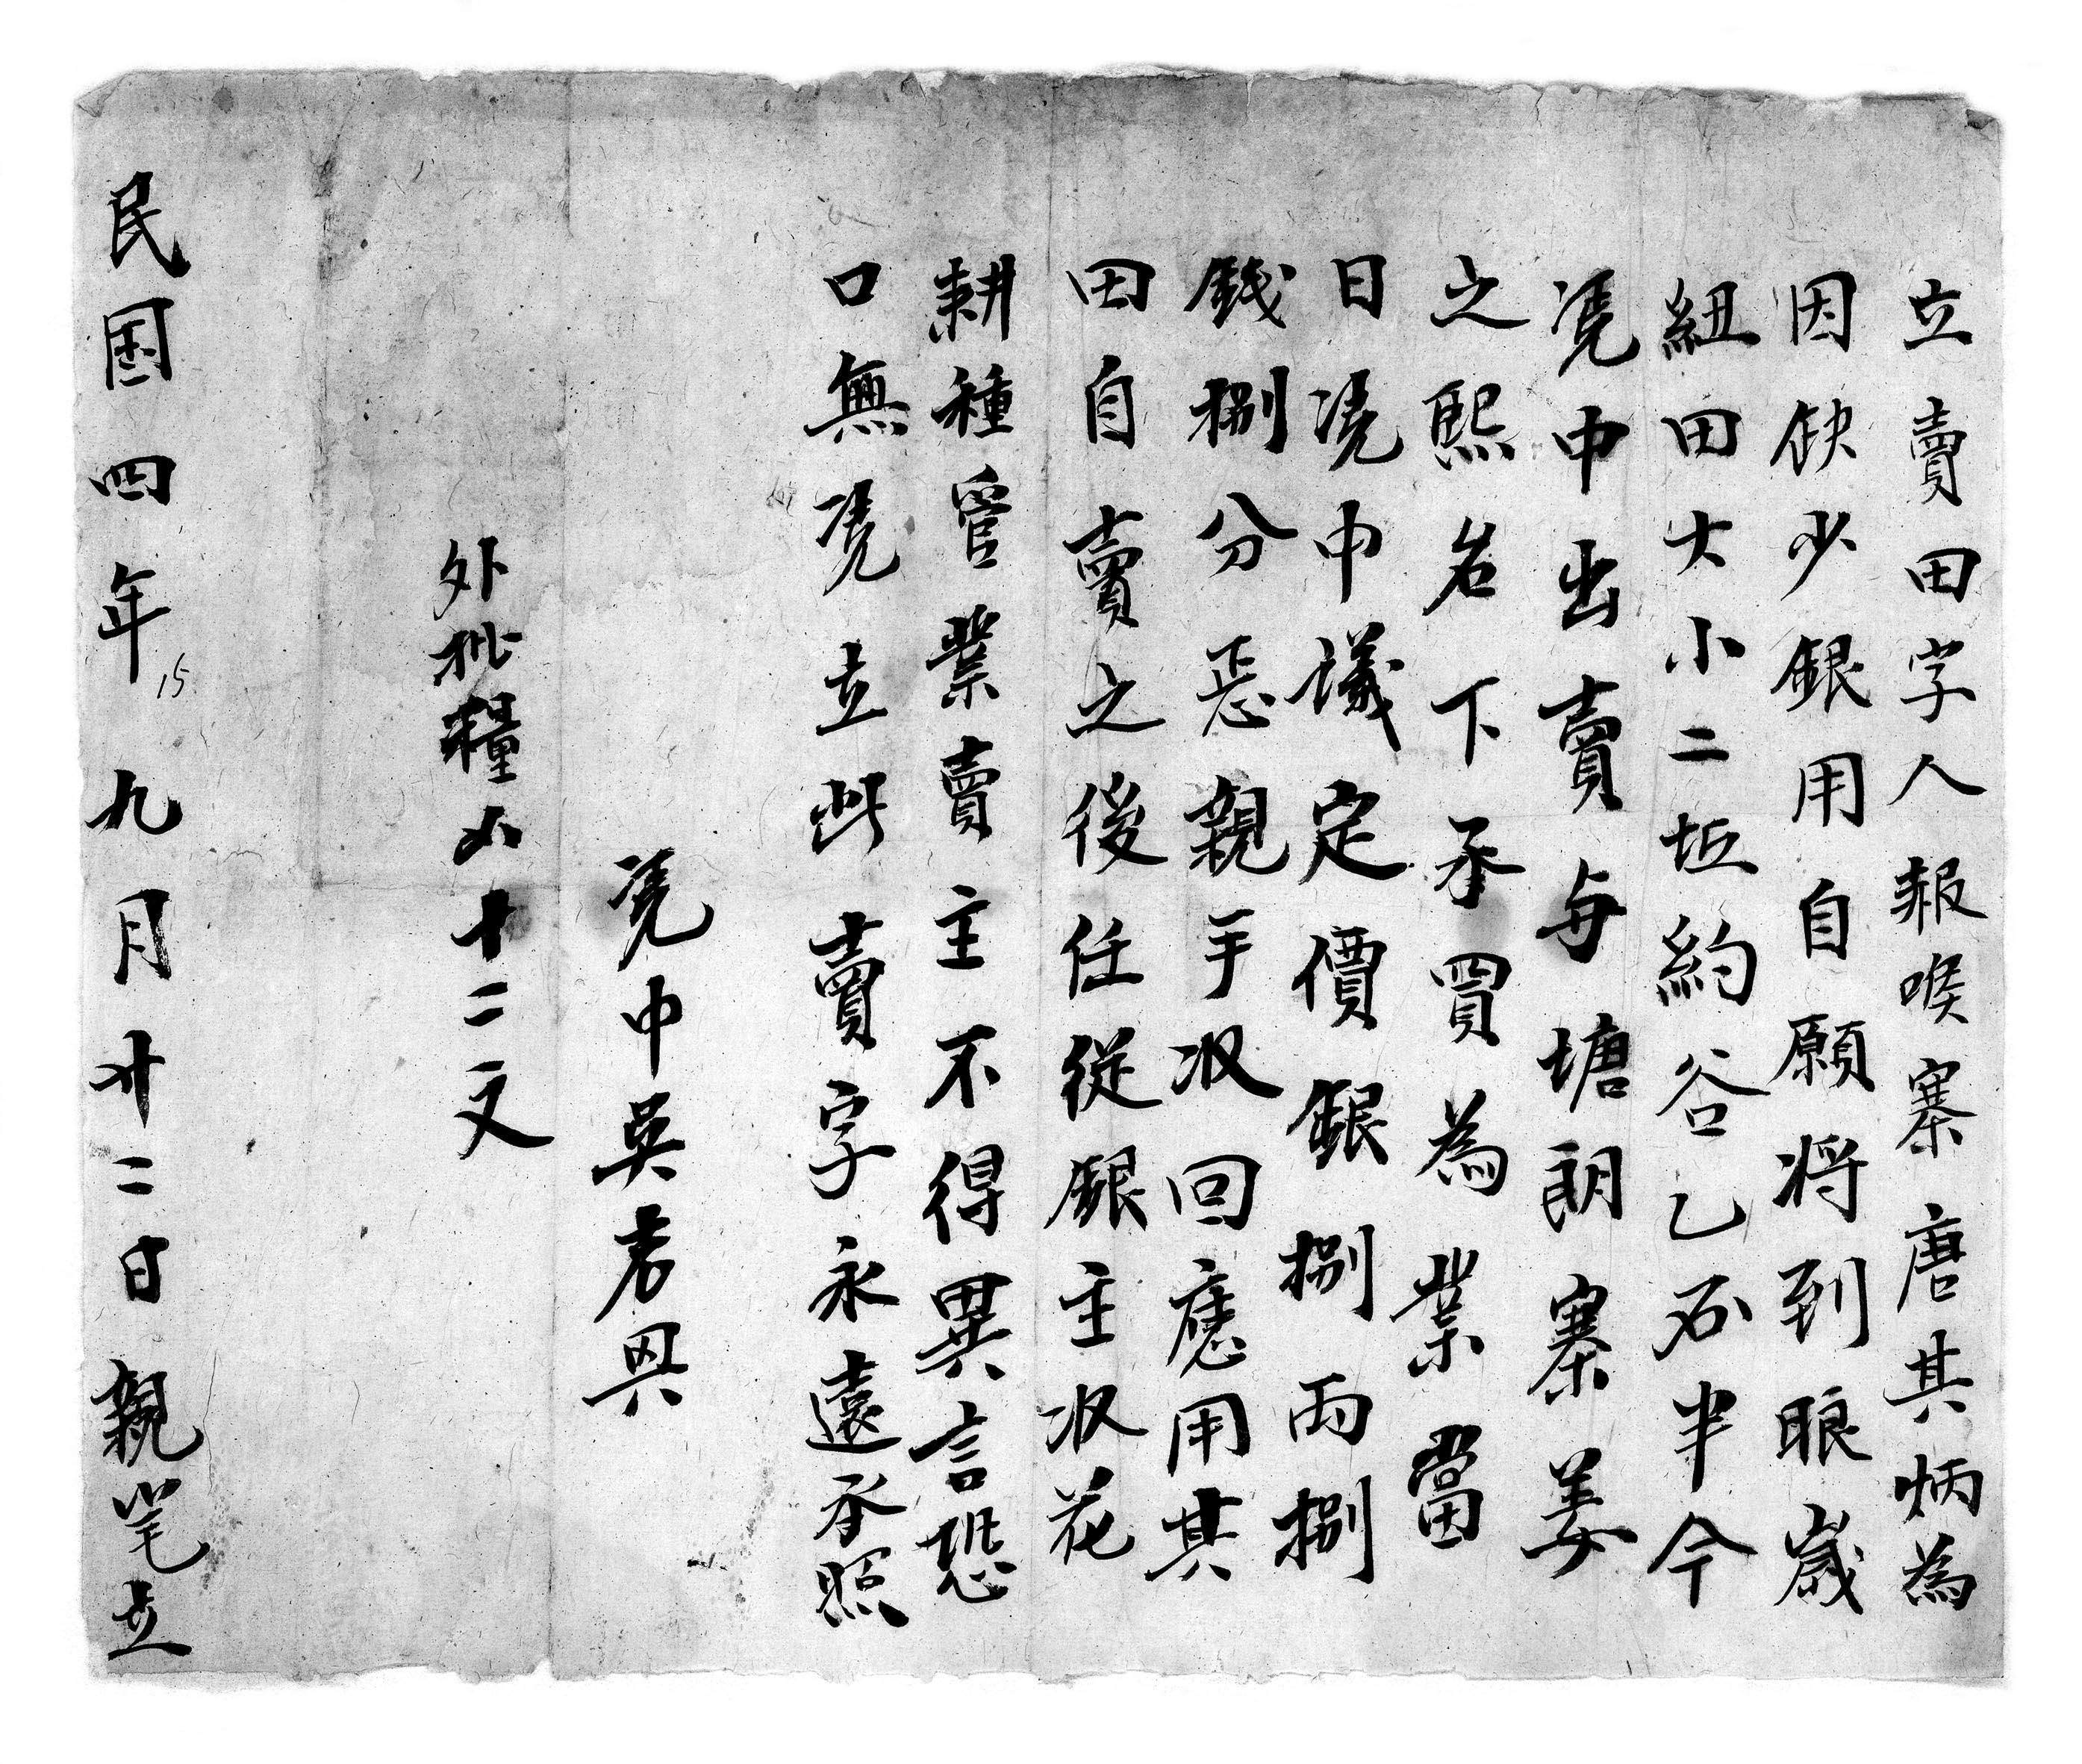 立賣田字人報喉寨唐其炳為
因缺少銀用自願將到眼嵗
紐田大小二坵約谷乙石半今
凴中出賣与塘朗寨姜
之熙名下承買為業當
日凴中議定價銀捌両捌
錢捌分㤙親手収回應用其
田自賣之後任從銀主収花
耕種管業賣主不得異言恐
口無凴立此賣字永遠承照
凴中吳老㒷
外批糧十二文
民国四年九月廿二日親笔立
15